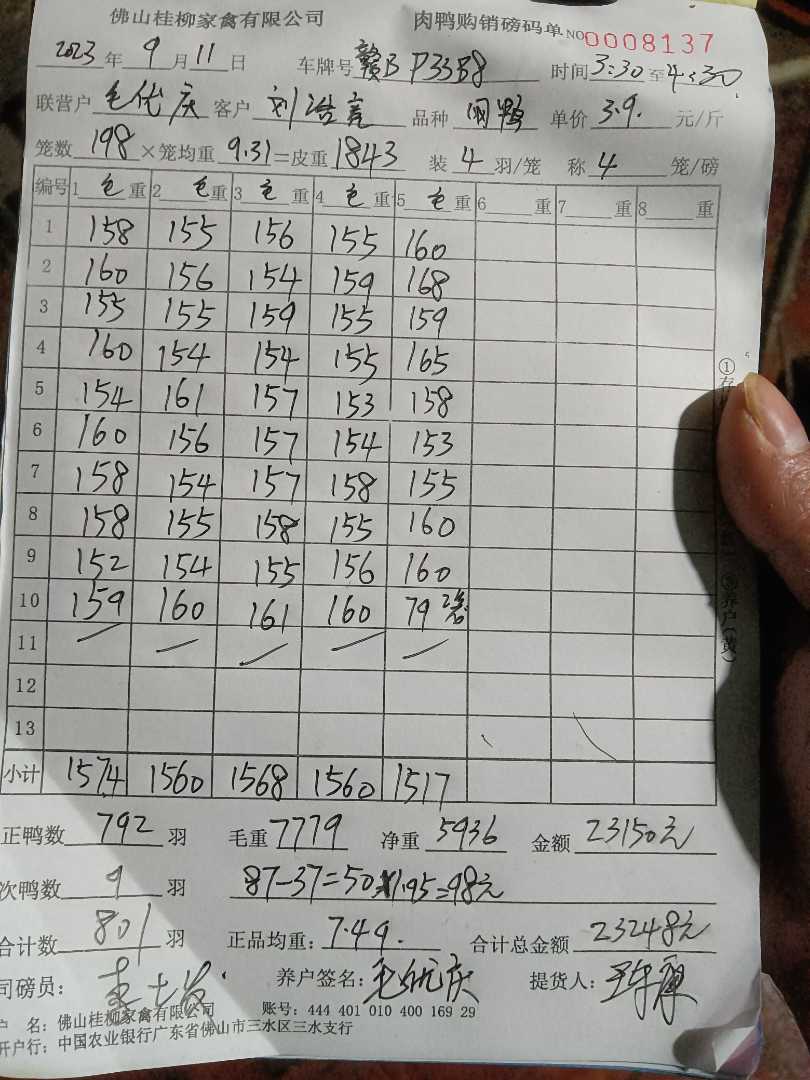 佛山桂柳家禽有限公司 肉鸭购销磅码单 NO 0008137
2023年9月11日 车牌号 赣B P33B8 时间 3:30至4:30
联营户 毛优庆 客户 刘浩亮 品种 单价 3.9. 元/斤
笼数 198 ×笼均重 9.31 =皮重 1843 装 4 羽/笼 称 4 笼/磅
编号 1 毛 重 2 毛 重 3 毛 重 4 毛 重 5 毛 重 6 重 7 重 8 重
1 158 155 156 155 160
2 160 156 154 159 168
3 155 155 159 155 159
4 160 154 154 155 165
5 154 161 157 153 158
6 160 156 157 154 153
7 158 154 157 158 155
8 158 155 158 155 160
9 152 154 155 156 160
10 159 160 161 160 79 2笼
11
12
13
小计 1574 1560 1568 1560 1517
正鸭数 792 羽 毛重 7779 净重 5936 金额 23150元
次鸭数 9 羽 87-37=50×1.95=98元
合计数 801 羽 正品均重: 7.49. 合计总金额 23248元
司磅员: 养户签名: 毛优庆 提货人:
户 名: 佛山桂柳家禽有限公司 账号: 444 401 010 400 169 29
开户行: 中国农业银行广东省佛山市三水区三水支行
①存
养户(黄)